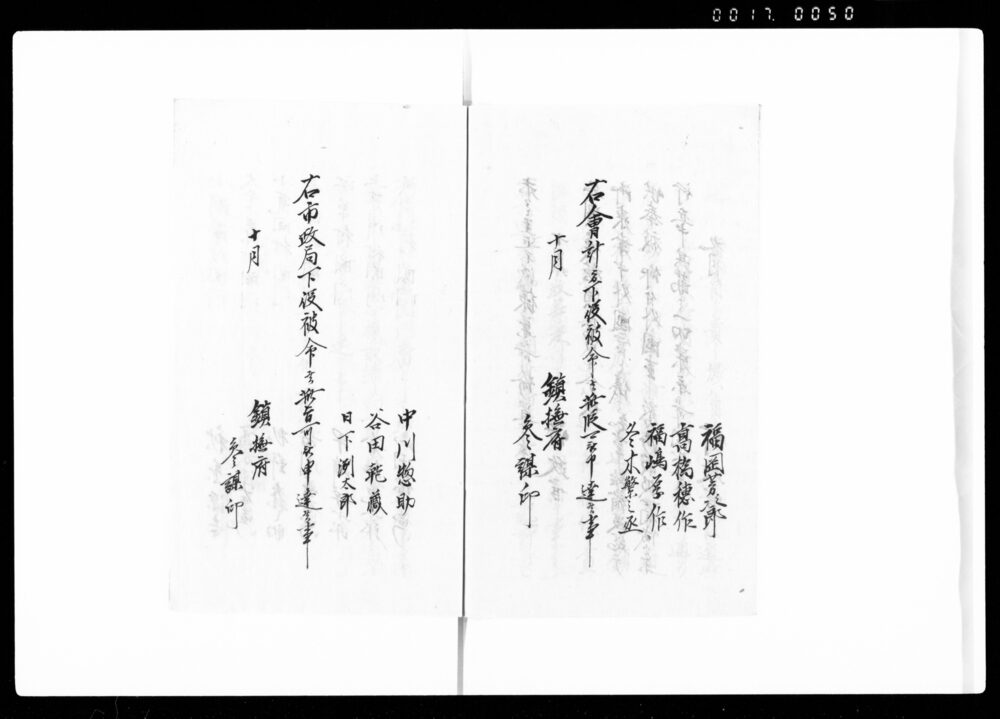 0017. 0050
福岡芳次郎
高橋穂作
福嶋孝作
冬木繁丞
右會計方下役被命候
可申達候事
十月
鎮撫府
参謀印
中川惣助
谷田乾蔵
日下渕太郎
右市政局下役被命候旨可申達候事
十月
鎮撫府
参謀印